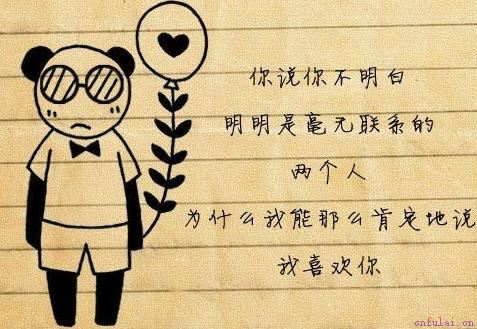 你说你不明白
明明是毫无联系的
两个人
为什么我能那么肯定地说
我喜欢你
cnfulai.cn